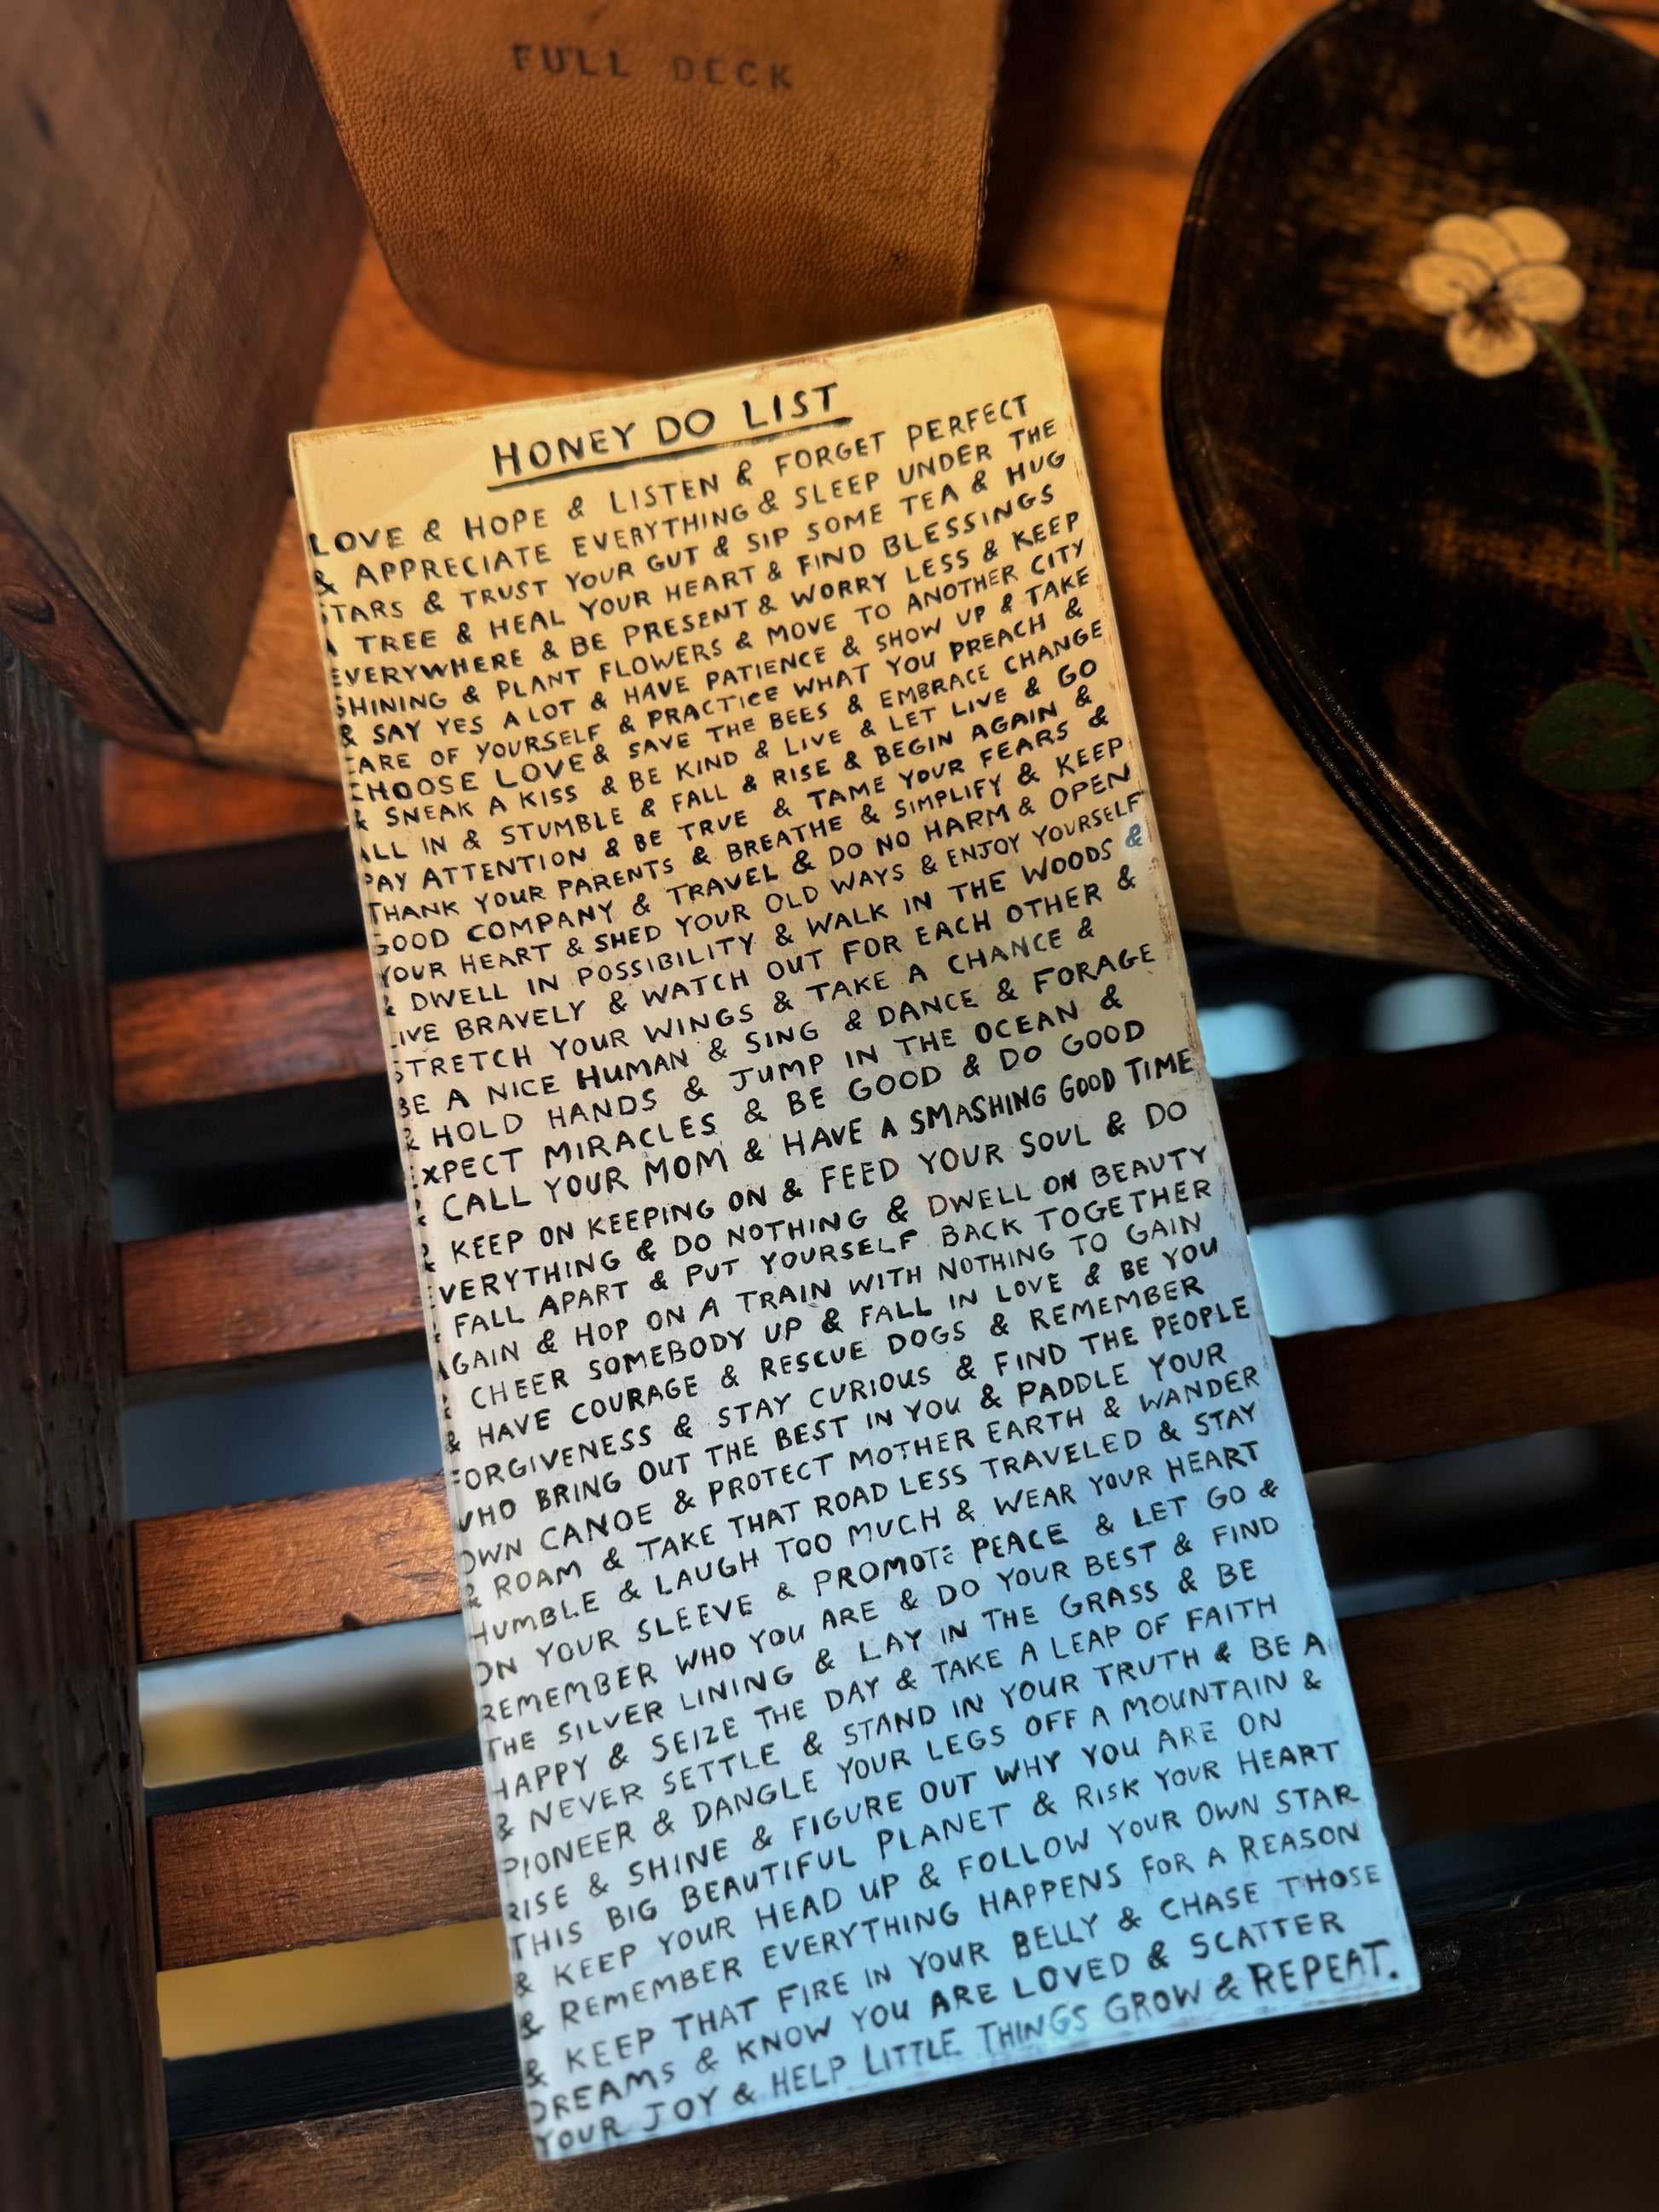 FULL DECK
HONEY DO LIST
LOVE & HOPE & LISTEN & FORGET PERFECT
& APPRECIATE EVERYTHING & SLEEP UNDER THE
STARS & TRUST YOUR GUT & SIP SOME TEA & HUG
A TREE & HEAL YOUR HEART & FIND BLESSINGS
EVERYWHERE & BE PRESENT & WORRY LESS & KEEP
SHINING & PLANT FLOWERS & MOVE TO ANOTHER CITY
& SAY YES A LOT & HAVE PATIENCE & SHOW UP & TAKE
CARE OF YOURSELF & PRACTICE WHAT YOU PREACH &
CHOOSE LOVE & SAVE THE BEES & EMBRACE CHANGE
& SNEAK A KISS & BE KIND & LIVE & LET LIVE & GO
ALL IN & STUMBLE & FALL & RISE & BEGIN AGAIN &
PAY ATTENTION & BE TRUE & TAME YOUR FEARS &
THANK YOUR PARENTS & BREATHE & SIMPLIFY & KEEP
GOOD COMPANY & TRAVEL & DO NO HARM & OPEN
YOUR HEART & SHED YOUR OLD WAYS & ENJOY YOURSELF
& DWELL IN POSSIBILITY & WALK IN THE WOODS &
LIVE BRAVELY & WATCH OUT FOR EACH OTHER &
STRETCH YOUR WINGS & TAKE A CHANCE &
BE A NICE HUMAN & SING & DANCE & FORAGE
& HOLD HANDS & JUMP IN THE OCEAN &
EXPECT MIRACLES & BE GOOD & DO GOOD
& CALL YOUR MOM & HAVE A SMASHING GOOD TIME
& KEEP ON KEEPING ON & FEED YOUR SOUL & DO
EVERYTHING & DO NOTHING & DWELL ON BEAUTY
& FALL APART & PUT YOURSELF BACK TOGETHER
AGAIN & HOP ON A TRAIN WITH NOTHING TO GAIN
& CHEER SOMEBODY UP & FALL IN LOVE & BE YOU
& HAVE COURAGE & RESCUE DOGS & REMEMBER
FORGIVENESS & STAY CURIOUS & FIND THE PEOPLE
WHO BRING OUT THE BEST IN YOU & PADDLE YOUR
OWN CANOE & PROTECT MOTHER EARTH & WANDER
& ROAM & TAKE THAT ROAD LESS TRAVELED & STAY
HUMBLE & LAUGH TOO MUCH & WEAR YOUR HEART
ON YOUR SLEEVE & PROMOTE PEACE & LET GO &
REMEMBER WHO YOU ARE & DO YOUR BEST & FIND
THE SILVER LINING & LAY IN THE GRASS & BE
HAPPY & SEIZE THE DAY & TAKE A LEAP OF FAITH
& NEVER SETTLE & STAND IN YOUR TRUTH & BE A
PIONEER & DANGLE YOUR LEGS OFF A MOUNTAIN &
RISE & SHINE & FIGURE OUT WHY YOU ARE ON
THIS BIG BEAUTIFUL PLANET & RISK YOUR HEART
& KEEP YOUR HEAD UP & FOLLOW YOUR OWN STAR
& REMEMBER EVERYTHING HAPPENS FOR A REASON
& KEEP THAT FIRE IN YOUR BELLY & CHASE THOSE
DREAMS & KNOW YOU ARE LOVED & SCATTER
YOUR JOY & HELP LITTLE THINGS GROW & REPEAT.